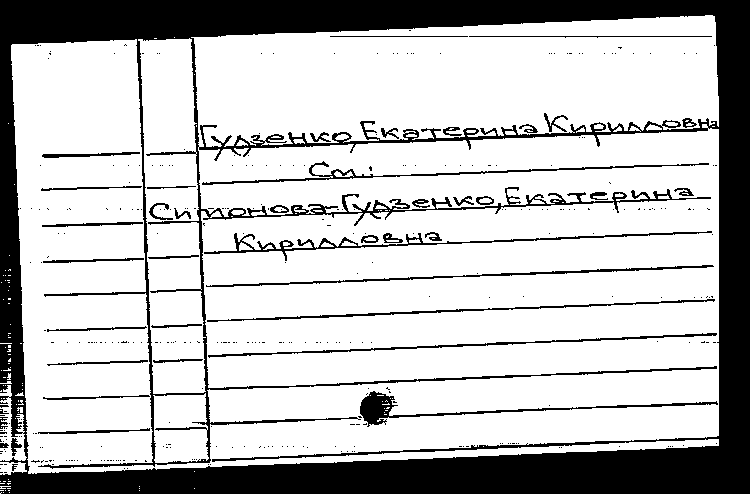 Гудзенко, Екатерина Кирилловна
См.:
Симонова-Гудзенко, Екатерина
Кирилловна